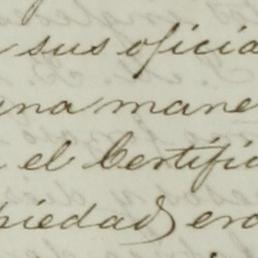 sus oficia
una mane
el Certific
piedad era